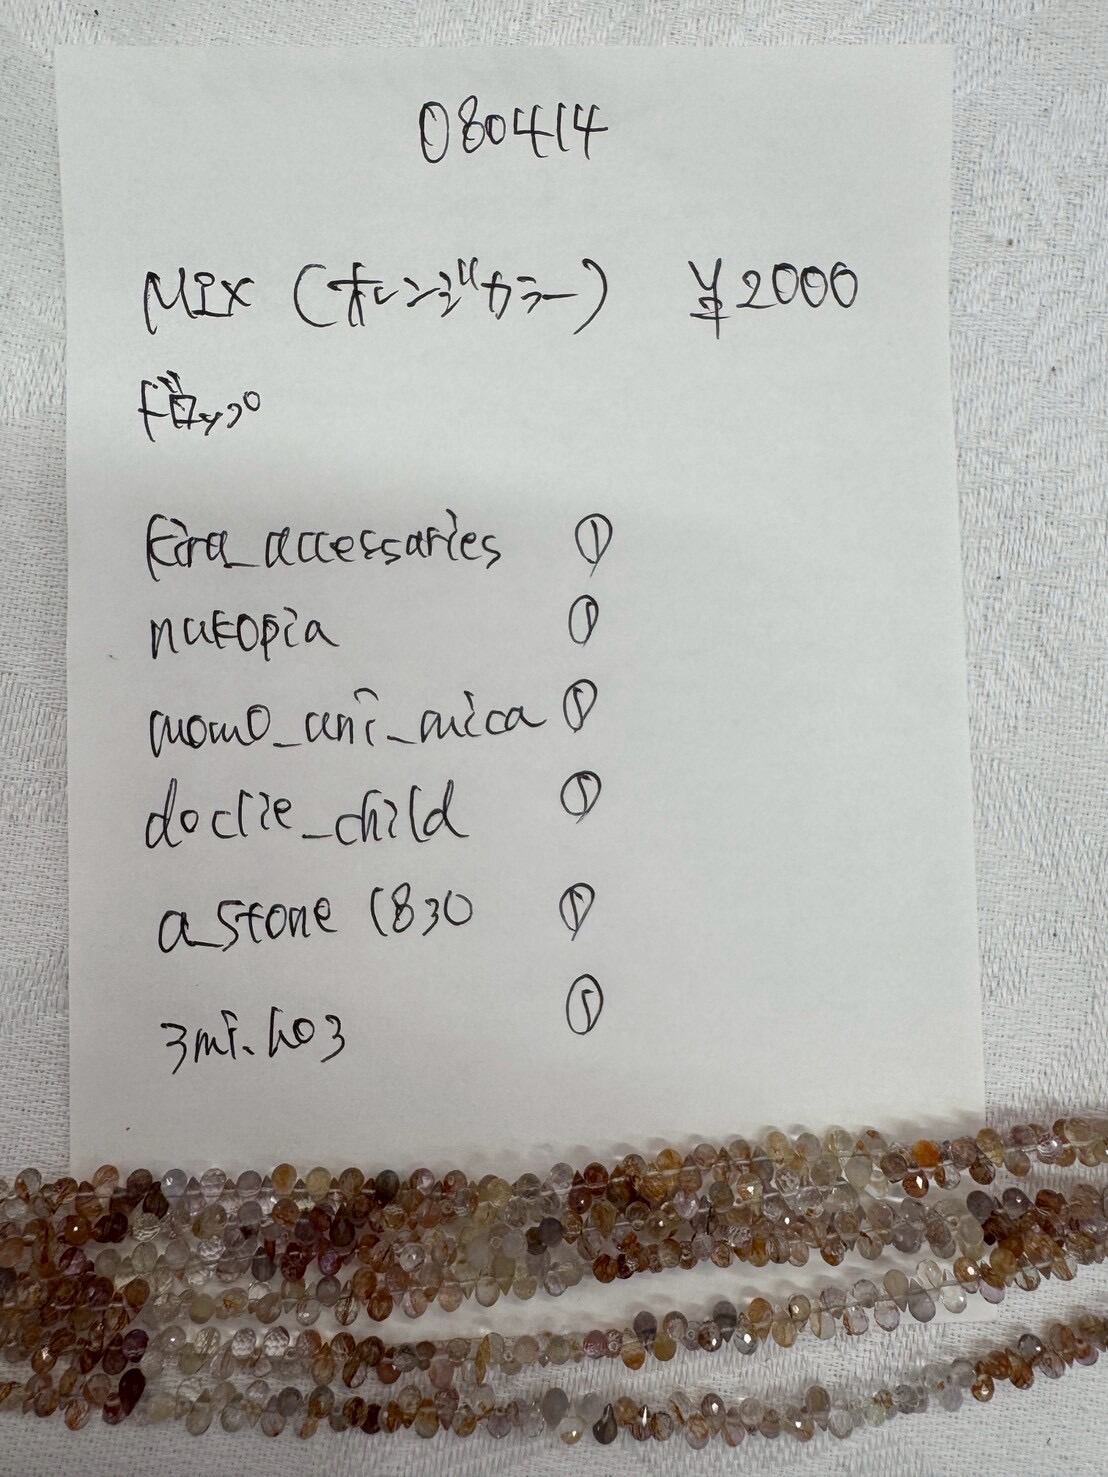 080414
MIX (オレンジカラー) ¥2000
ドロップ
kira_accessaries ①
nukopia ①
momo_uni_mica ①
doclie_child ①
a_stone 1830 ①
3mi.ho3 ①